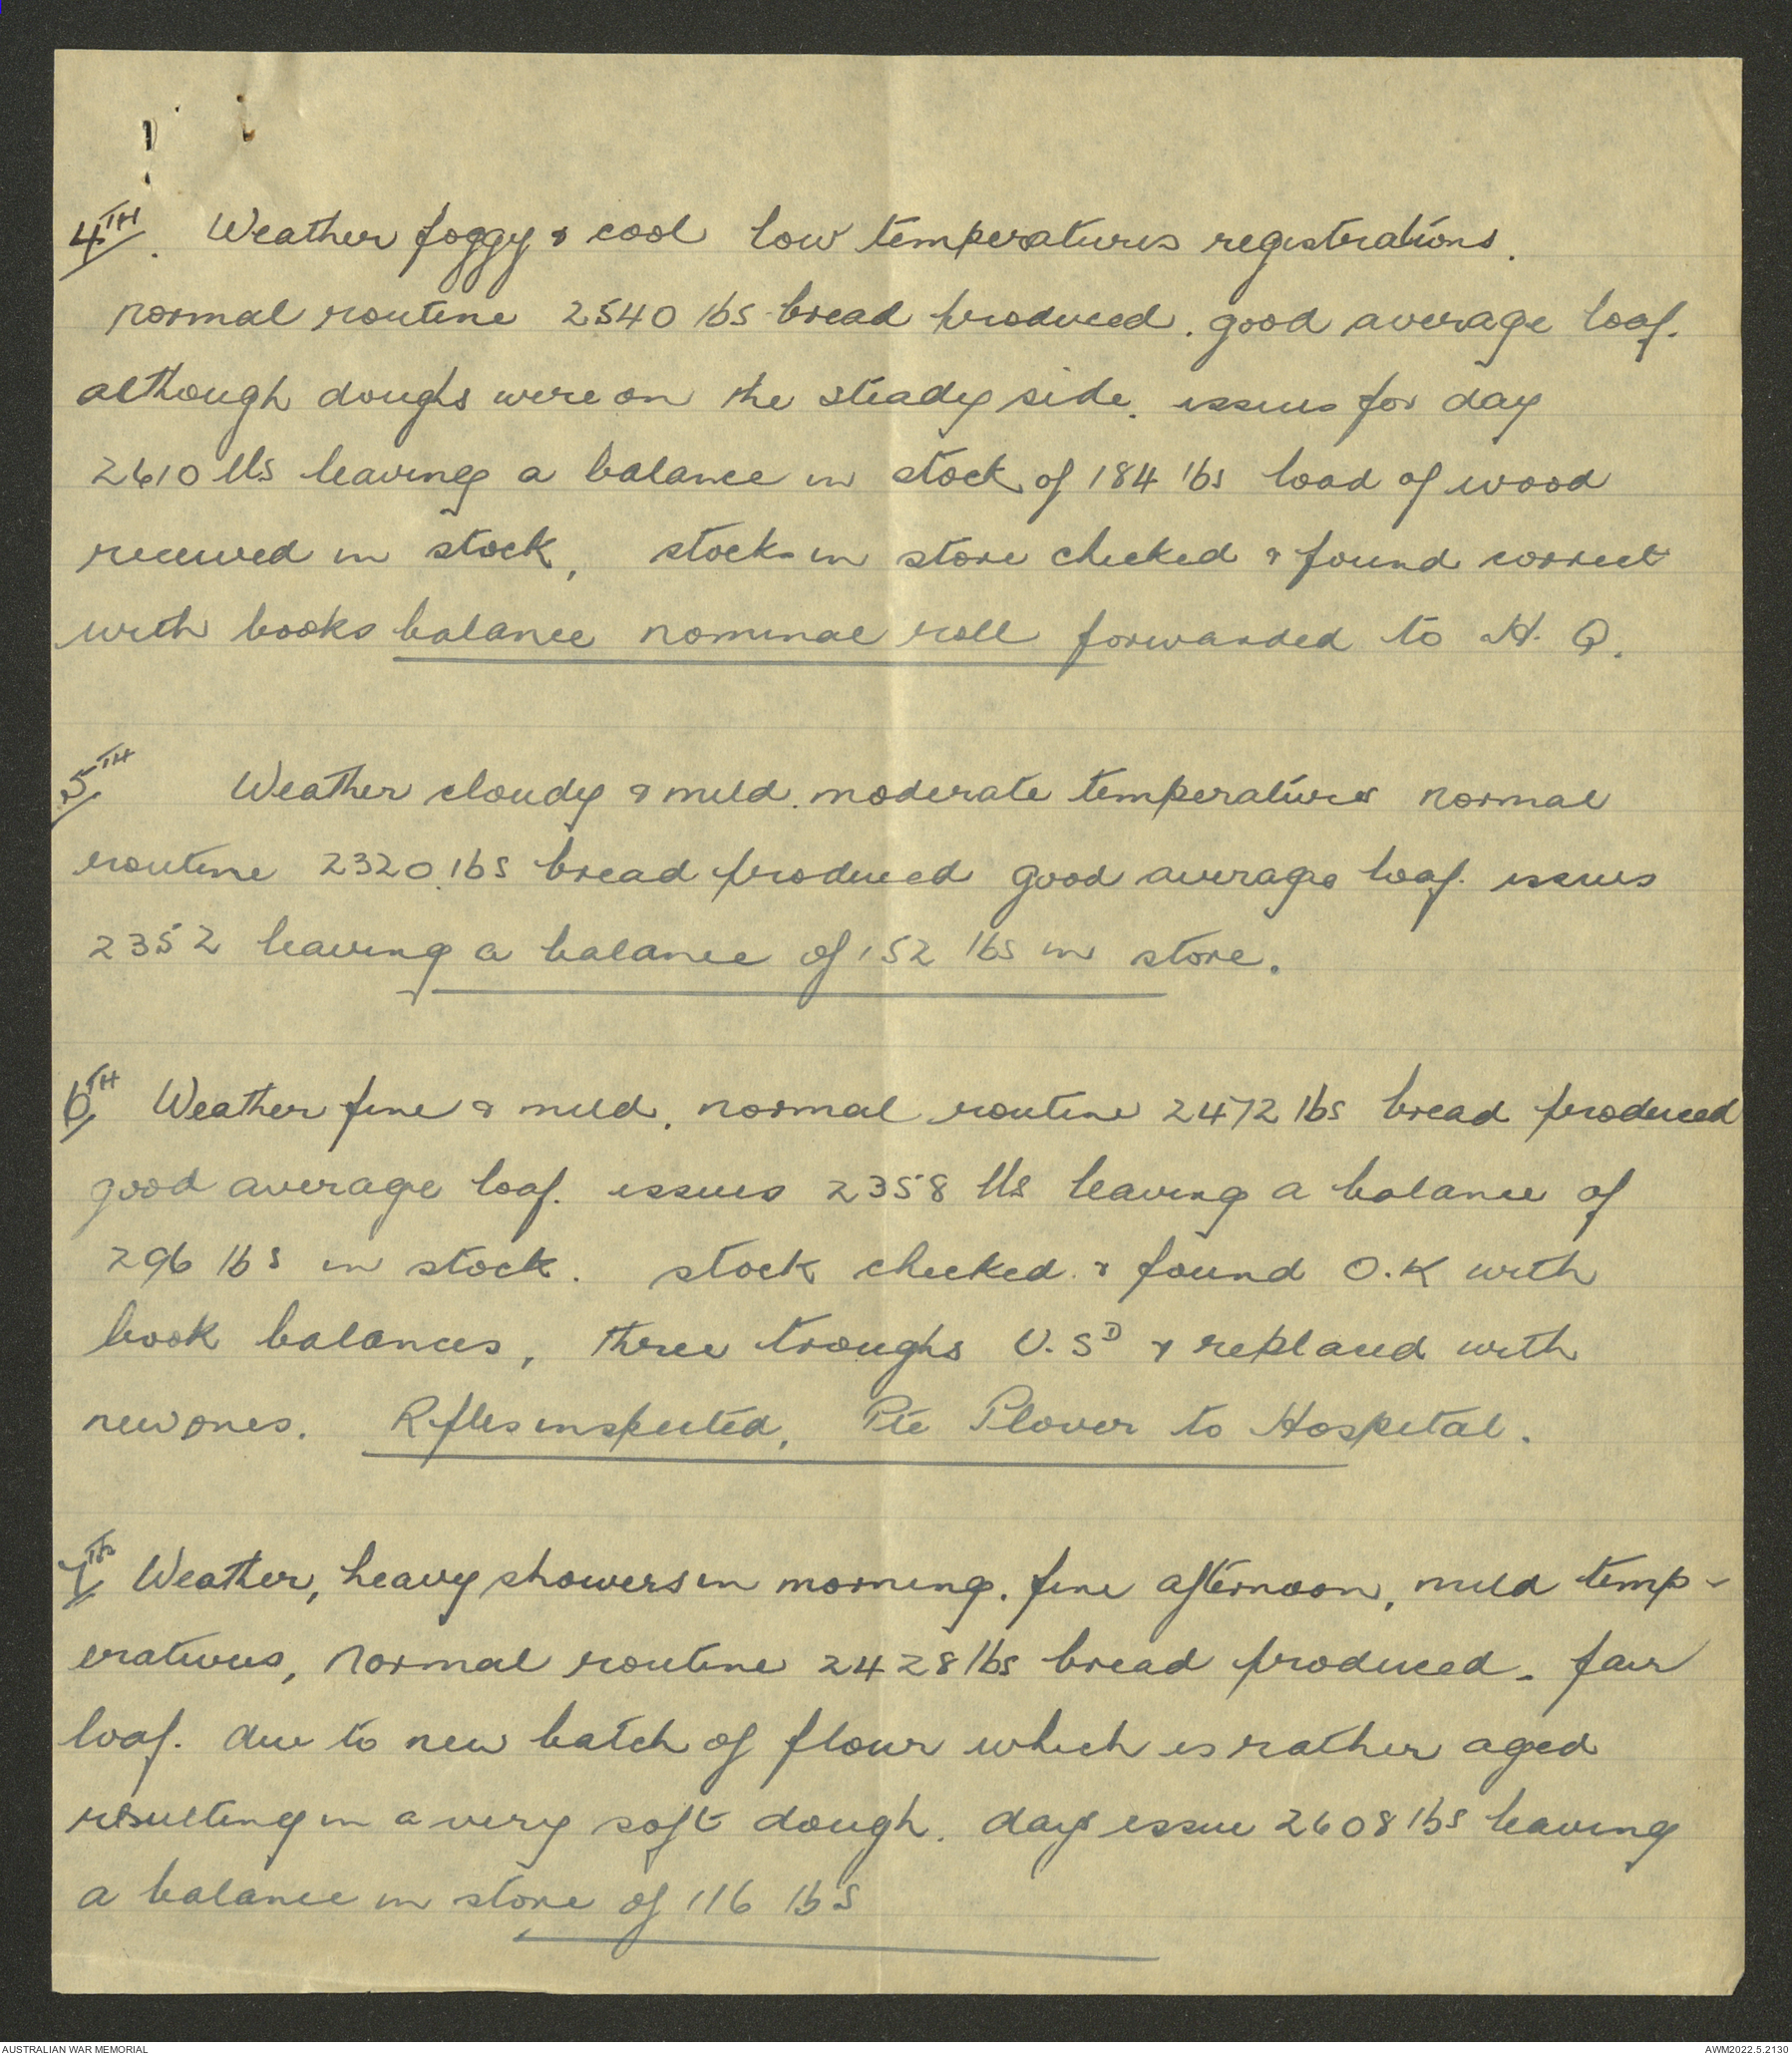 4TH. Weather foggy & cool low temperatures registrations.
normal routine 2540 lbs bread produced. good average loaf.
although doughs were on the steady side. issues for day
2610 lbs leaving a balance in stock of 184 lbs load of wood
received in stock, stock in store checked & found correct
with books balance nominal roll forwarded to H. Q.
5TH Weather cloudy & mild. moderate temperatures normal
routine 2320 lbs bread produced good average loaf. issues
2352 leaving a balance of 152 lbs in store.
6TH Weather fine & mild. normal routine 2472 lbs bread produced
good average loaf. issues 2358 lbs leaving a balance of
296 lbs in stock. stock checked & found O.K with
book balances, three troughs U.SD & replaced with
new ones. Rifles inspected, Pte Plover to Hospital.
7TH Weather, heavy showers in morning. fine afternoon, mild temp-
eratures, normal routine 2428 lbs bread produced. fair
loaf. due to new batch of flour which is rather aged
resulting in a very soft dough. days issue 2608 lbs leaving
a balance in store of 116 lbs
AUSTRALIAN WAR MEMORIAL AWM2022.5.2130